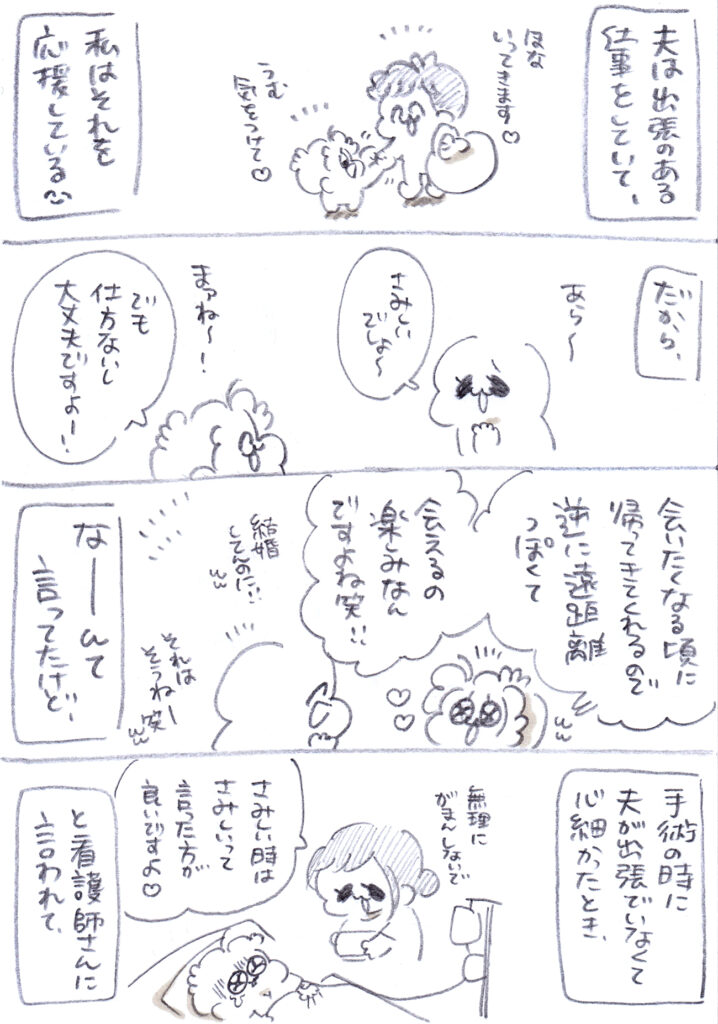 夫は出張のある
仕事をしていて、
ほな
いってきます♡
うむ
気をつけて♡
私はそれを
応援している
だから、
あら〜
さみしい
でしょ〜
まァね〜!
でも
仕方ないし
大丈夫ですよー!!
会いたくなる頃に
帰ってきてくれるので
逆に遠距離
っぽくて
会えるの
楽しみなん
ですよね笑!!
結婚
してんのに!!
ww
それは
そうねー
笑
ww
なーんて
言ってたけど、
手術の時に
夫が出張でいなくて
心細かったとき、
無理に
がまんしないで
さみしい時は
さみしいって
言った方が
良いですよ♡
と看護師さんに
言われて、